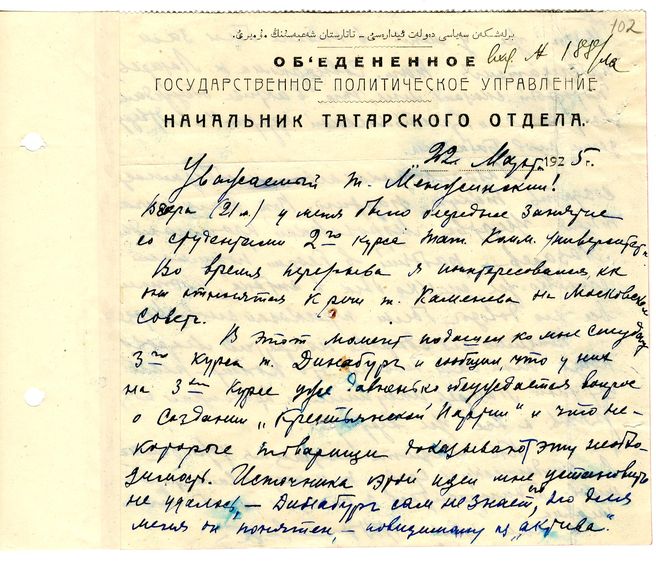 102
вход. № 188/ла
ОБ'ЕДЕНЕННОЕ
ГОСУДАРСТВЕННОЕ ПОЛИТИЧЕСКОЕ УПРАВЛЕНИЕ
НАЧАЛЬНИК ТАТАРСКОГО ОТДЕЛА.
„22" Марта 1925 г.
Уважаемый т. Менжинский!
Вчера (21м.) у меня было очередное занятие
со студентами 2го курса Тат. Комм. Университета.
Во время перерыва я интересовался, как
они относятся к речи т. Каменева на Московском
совете.
В этот момент подошел ко мне студент
3го курса т. Динабург и сообщил, что у них
на 3ем курсе уже давненько обсуждается вопрос
о создании „Крестьянской Партии" и что не-
которые товарищи доказывают эту необхо-
димость. Источника этой идеи мне установить
не удалось – Динабург сам не знает, но для
меня он понятен, – повидимому из „актива".